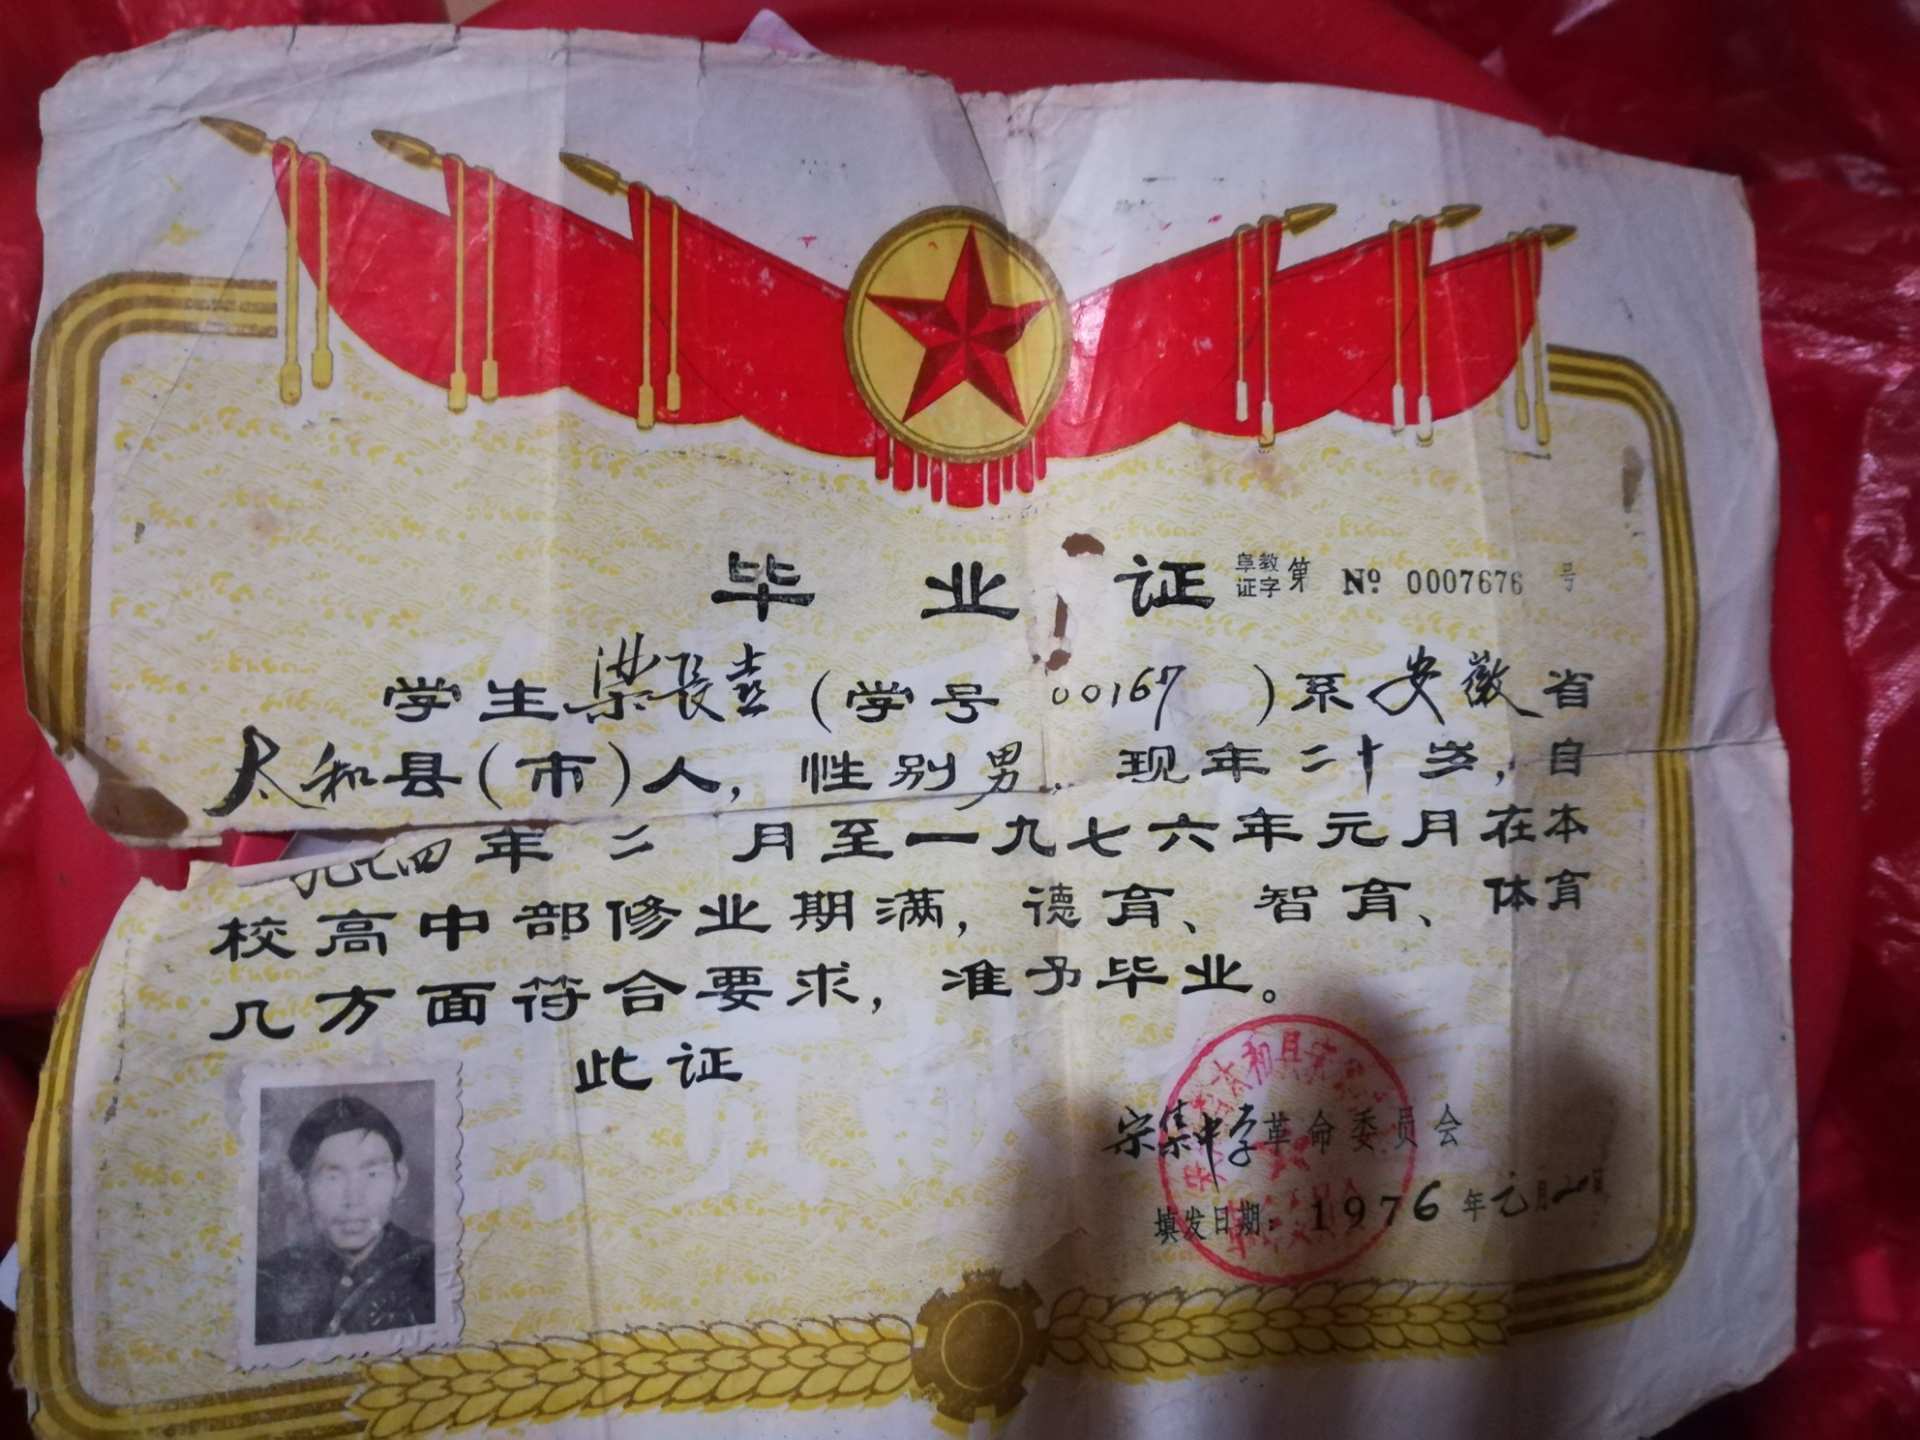 毕业证 阜教证字第 No 0007676 号
学生梁長喜(学号 00167 )系安徽省
太和县(市)人,性别男,现年二十岁,自
一九七四年二月至一九七六年元月在本
校高中部修业期满,德育、智育、体育
几方面符合要求,准予毕业。
此证
宋集中学革命委员会
填发日期:1976年元月20日
太和县宋